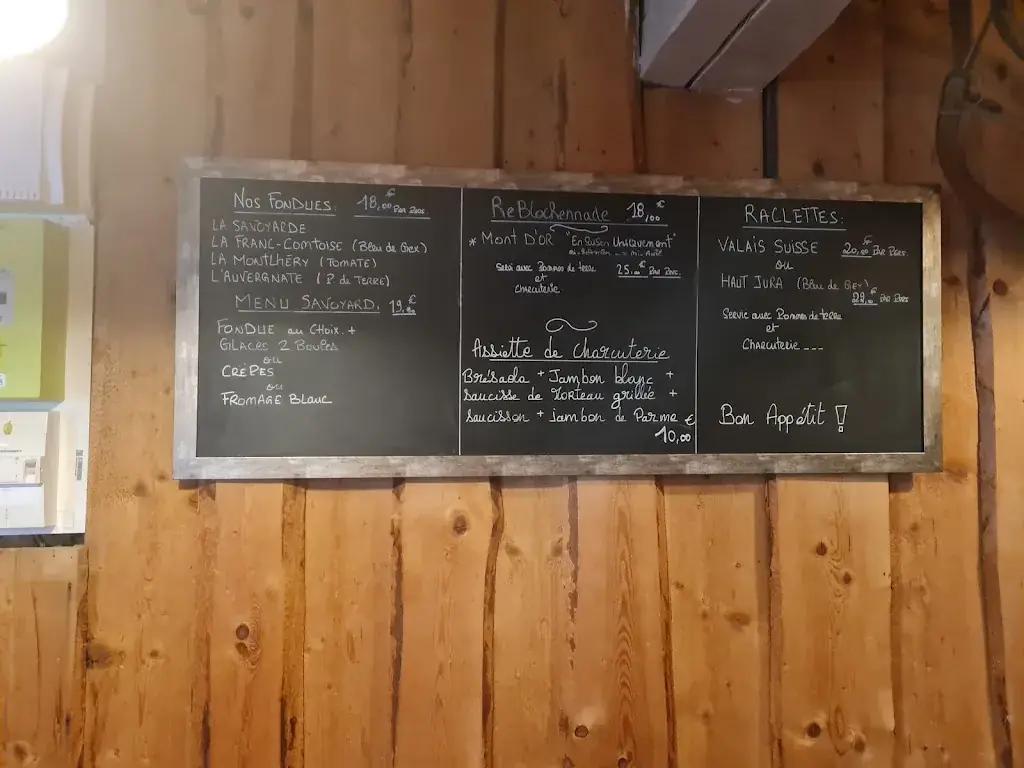 NOS FONDUES: 18,00€ PAR PERS.
LA SAVOYARDE
LA FRANC-COMTOISE (Bleu de Gex)
LA MONTLHÉRY (TOMATE)
L'AUVERGNATE (P. de TERRE)
MENU SAVOYARD. 19,00€
FONDUE au CHOIX. +
GLACES 2 Boules
ou
CRÊPES
ou
FROMAGE BLANC
ReBlochennade 18,00€
* MONT D'OR "En Saison Uniquement"
Servi avec Pommes de terre 25.00€ PAR Pers.
et
charcuterie
Assiette de Charcuterie
Brésaola + Jambon blanc +
saucisse de Morteau grillée +
saucisson + jambon de Parme
10,00€
RACLETTES:
VALAIS SUISSE 20,00€ PAR PERS.
ou
HAUT JURA (Bleu de Gex)
22,00€ PAR PERS
Servie avec Pommes de terre
et
Charcuterie ---
Bon Appétit !